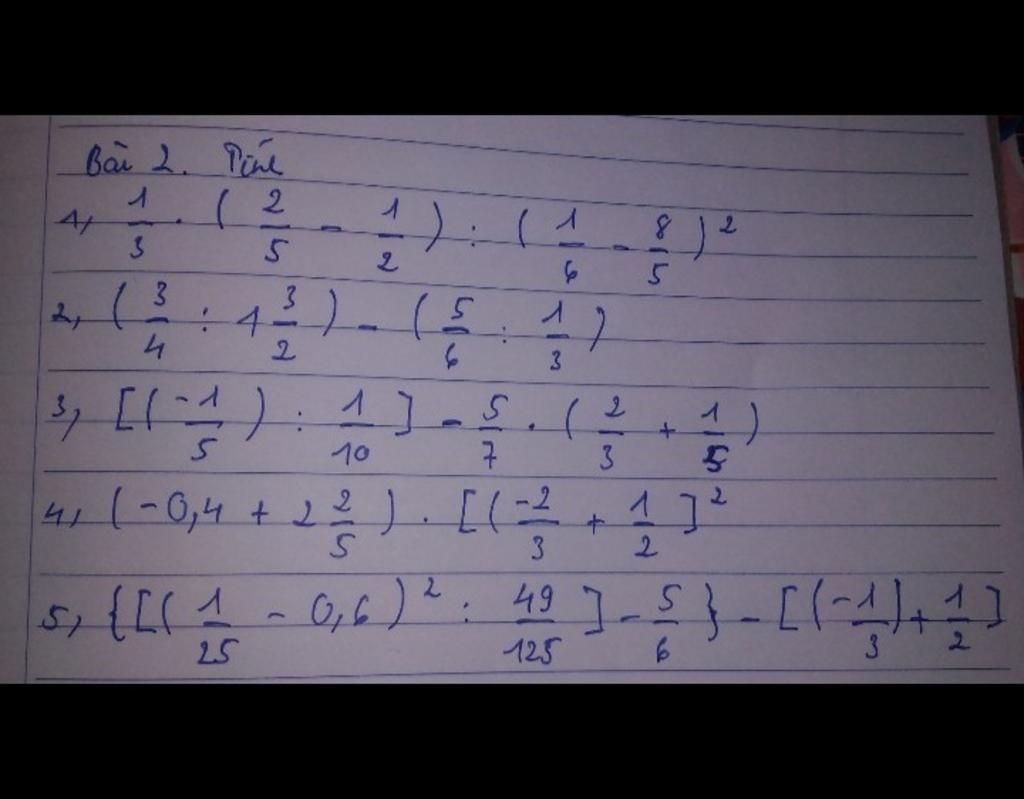 Bài 2. Tính
1, \frac{1}{3} . ( \frac{2}{5} - \frac{1}{2} ) : ( \frac{1}{6} - \frac{8}{5} )^2
2, ( \frac{3}{4} : 1\frac{3}{2} ) - ( \frac{5}{6} : \frac{1}{3} )
3, [ ( \frac{-1}{5} ) : \frac{1}{10} ] - \frac{5}{7} . ( \frac{2}{3} + \frac{1}{5} )
4, ( -0,4 + 2\frac{2}{5} ) . [ ( \frac{-2}{3} + \frac{1}{2} ]^2
5, { [ ( \frac{1}{25} - 0,6 )^2 : \frac{49}{125} ] - \frac{5}{6} } - [ ( \frac{-1}{3} ) + \frac{1}{2} ]